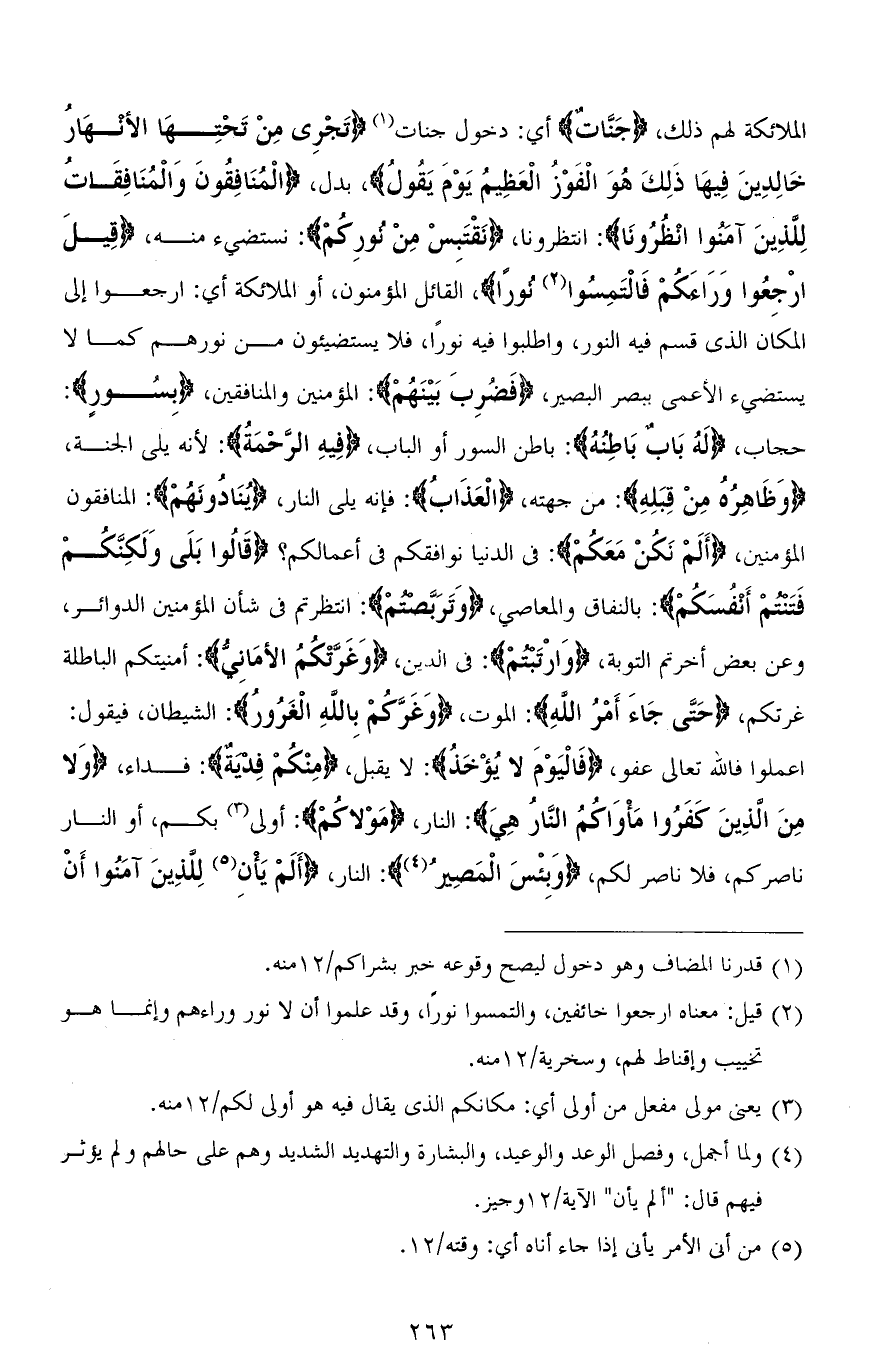 الملائكة لهم ذلك، ﴿جَنَّاتٌ﴾ أي: دخول جنات(١) ﴿تَجْرِى مِنْ تَحْتِهَا الأَنْهَارُ
خَالِدِينَ فِيهَا ذَلِكَ هُوَ الْفَوْزُ الْعَظِيمُ يَوْمَ يَقُولُ﴾، بدل، ﴿الْمُنَافِقُونَ وَالْمُنَافِقَاتُ
لِلَّذِينَ آمَنُوا انْظُرُونَا﴾: انتظرونا، ﴿نَقْتَبِسْ مِنْ نُورِكُمْ﴾: نستضيء منه، ﴿قِيلَ
ارْجِعُوا وَرَاءَكُمْ فَالْتَمِسُوا(٢) نُورًا﴾، القائل المؤمنون، أو الملائكة أي: ارجعوا إلى
المكان الذى قسم فيه النور، واطلبوا فيه نورًا، فلا يستضيئون من نورهم كما لا
يستضيء الأعمى ببصر البصير، ﴿فَضُرِبَ بَيْنَهُمْ﴾: المؤمنين والمنافقين، ﴿بِسُورٍ﴾:
حجاب، ﴿لَهُ بَابٌ بَاطِنُهُ﴾: باطن السور أو الباب، ﴿فِيهِ الرَّحْمَةُ﴾: لأنه يلى الجنة،
﴿وَظَاهِرُهُ مِنْ قِبَلِهِ﴾: من جهته، ﴿الْعَذَابُ﴾: فإنه يلى النار، ﴿يُنَادُونَهُمْ﴾: المنافقون
المؤمنين، ﴿أَلَمْ نَكُنْ مَعَكُمْ﴾: فى الدنيا نوافقكم فى أعمالكم؟ ﴿قَالُوا بَلَى وَلَكِنَّكُمْ
فَتَنْتُمْ أَنْفُسَكُمْ﴾: بالنفاق والمعاصي، ﴿وَتَرَبَّصْتُمْ﴾: انتظرتم فى شأن المؤمنين الدوائر،
وعن بعض أخرتم التوبة، ﴿وَارْتَبْتُمْ﴾: فى الدين، ﴿وَغَرَّتْكُمُ الأمَانِيُّ﴾: أمنيتكم الباطلة
غرتكم، ﴿حَتَّى جَاءَ أَمْرُ اللَّهِ﴾: الموت، ﴿وَغَرَّكُمْ بِاللَّهِ الْغَرُورُ﴾: الشيطان، فيقول:
اعملوا فالله تعالى عفو، ﴿فَالْيَوْمَ لا يُؤْخَذُ﴾: لا يقبل، ﴿مِنْكُمْ فِدْيَةٌ﴾: فداء، ﴿وَلا
مِنَ الَّذِينَ كَفَرُوا مَأْوَاكُمُ النَّارُ هِيَ﴾: النار، ﴿مَوْلاكُمْ﴾: أولى(٣) بكم، أو النار
ناصركم، فلا ناصر لكم، ﴿وَبِئْسَ الْمَصِيرُ(٤)﴾: النار، ﴿أَلَمْ يَأْنِ(٥) لِلَّذِينَ آمَنُوا أَنْ
(١) قدرنا المضاف وهو دخول ليصح وقوعه خبر بشراكم/١٢منه.
(٢) قيل: معناه ارجعوا خائفين، والتمسوا نورًا، وقد علموا أن لا نور وراءهم وإنما هو
تخييب وإقناط لهم، وسخرية/١٢منه.
(٣) يعنى مولى مفعل من أولى أي: مكانكم الذى يقال فيه هو أولى لكم/١٢منه.
(٤) ولما أجمل، وفصل الوعد والوعيد، والبشارة والتهديد الشديد وهم على حالهم ولم يؤثر
فيهم قال: "ألم يأن" الآية/١٢وجيز.
(٥) من أنى الأمر يأنى إذا جاء أناه أي: وقته/١٢.
٢٦٣